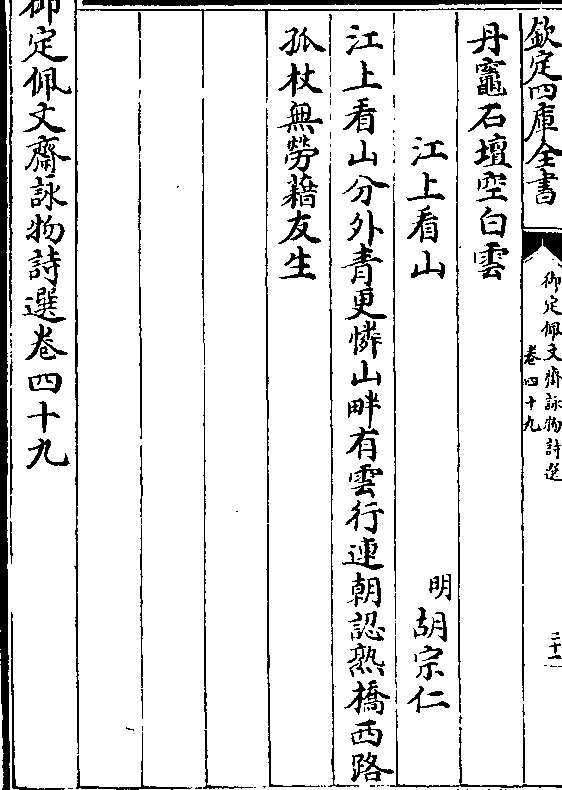 欽定四庫全書
御定佩文齋詠物詩選
卷四十九
二十一
丹竈石壇空白雲
江上看山
明
胡宗仁
江上看山分外青更憐山畔有雲行連朝認熟橋西路
孤杖無勞藉友生
御定佩文齋詠物詩選卷四十九